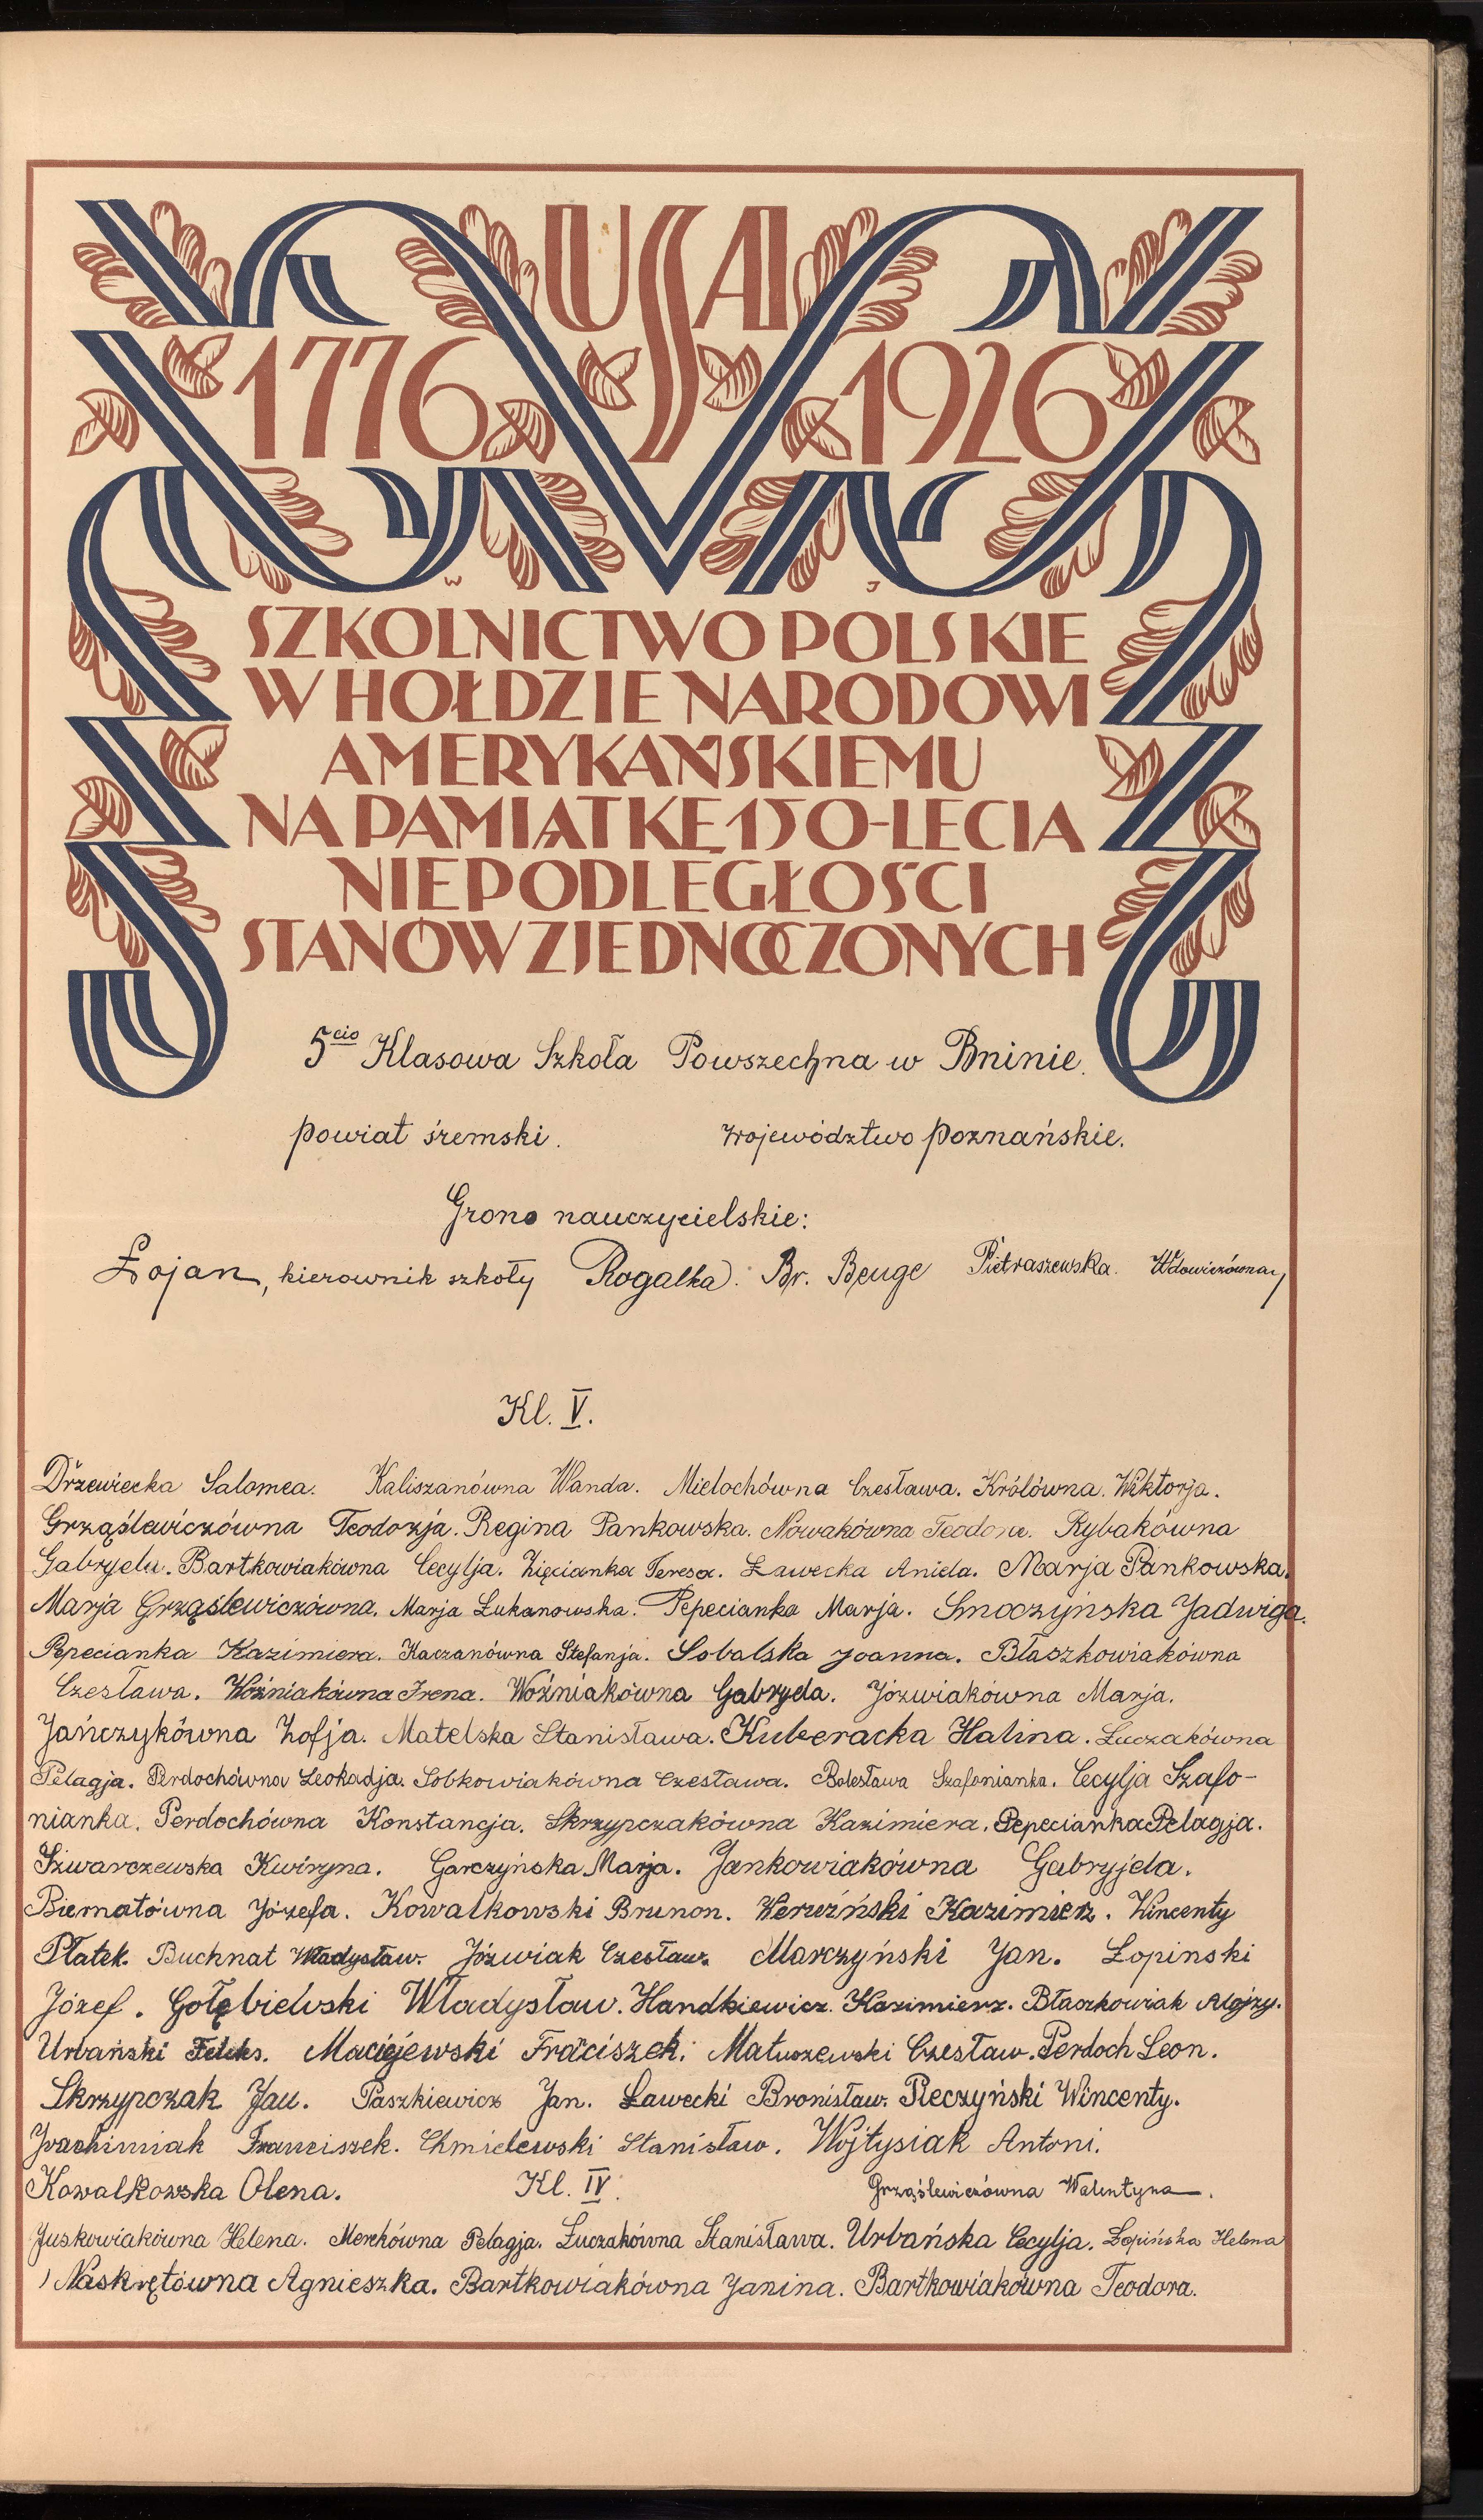 USA
1776 1926
W J
SZKOLNICTWO POLSKIE
W HOŁDZIE NARODOWI
AMERYKAŃSKIEMU
NA PAMIĄTKĘ 150-LECIA
NIEPODLEGŁOŚCI
STANÓW ZJEDNOCZONYCH
5cio Klasowa Szkoła Powszechna w Bninie.
powiat śremski. województwo poznańskie.
Grono nauczycielskie:
Łojan, kierownik szkoły Rogalka. Br. Benge Pietraszewska. Wdowiczówna
Kl. V.
Drzewiecka Salomea. Kaliszanówna Wanda. Mielochówna Czesława. Królówna. Wiktorja.
Grząślewiczówna Teodozja. Regina Pankowska. Nowakówna Teodora. Rybakówna
Gabryela. Bartkowiakówna Cecylja. Zięcianka Teresa. Ławecka Aniela. Marja Pankowska.
Marja Grząslewiczówna. Marja Łukanowska. Pepecianka Marja. Smoczyńska Jadwiga.
Pepecianka Kazimiera. Kaczanówna Stefanja. Sobalska Joanna. Błaszkowiakówna
Czesława. Woźniakówna Irena. Woźniakówna Gabryela. Józwiakówna Marja.
Jańczykówna Zofja. Matelska Stanisława. Kuberacka Halina. Łuczakówna
Pelagja. Perdochówna Leokadja. Sobkowiakówna Czesława. Bolesława Szafonianka. Cecylja Szafo-
nianka. Perdochówna Konstancja. Skrzypczakówna Kazimiera. Pepecianka Pelagja.
Szwarczewska Kwiryna. Garczyńska Marja. Jankowiakówna Gabryjela.
Biernatówna Józefa. Kowalkowski Brunon. Kazimierz. Wincenty
Płatek. Buchnat Władysław. Józwiak Czesław. Marczyński Jan. Łopinski
Józef. Gołębielvski Władysław. Handkiewicz. Kazimierz. Błaszkowiak Alojzy.
Urbański Feliks. Maciejewski Fraciszek. Matuszewski Czesław. Perdoch Leon.
Skrzypczak Jan. Paszkiewicz Jan. Ławecki Bronisław. Pieczyński Wincenty.
Joachimiak Franciszek. Chmielewski Stanisław. Wojtysiak Antoni.
Kowalkowska Olena. Kl. IV. Grząślewiczówna Walentyna.
Juskowiakówna Helena. Merkówna Pelagja. Łuczakówna Stanisława. Urbańska Cecylja. Łopińska Helena
Naskrętówna Agnieszka. Bartkowiakówna Janina. Bartkowiakówna Teodora.